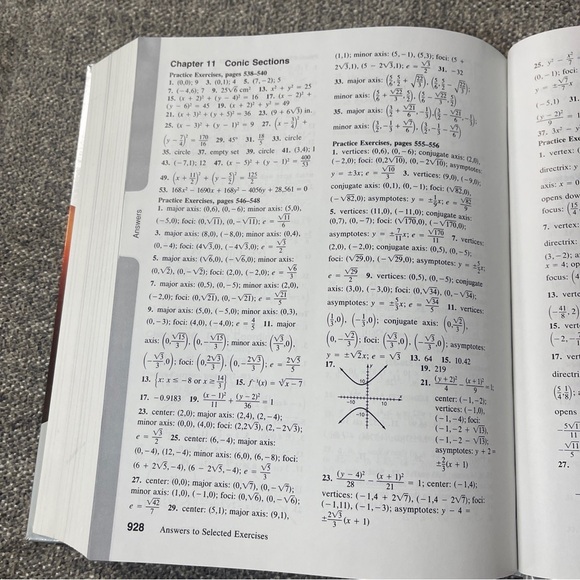 Chapter 11 Conic Sections
Practice Exercises, pages 538–540
1. (0,0); 9 3. (0,1); 4 5. (7,−2); 5
7. (−4,6); 7 9. 25√6 cm² 13. x² + y² = 25
15. (x + 2)² + (y − 4)² = 16 17. (x − 2)² +
(y − 6)² = 45 19. (x + 2)² + y² = 49
21. (x + 3)² + (y + 5)² = 36 23. (9 + 6√3) in.
25. (x − 3)² + (y − 1)² = 9 27. (x − 1/4)² +
(y − 7/4)² = 170/16 29. 45° 31. 33. circle
35. circle 37. empty set 39. circle 41. (3,4); 1
43. (−7,1); 12 47. (x − 5)² + (y − 1)² = 400/53
49. (x + 11/2)² + (y − 5/2)² = 125/2
53. 168x² − 1690x + 168y² − 4056y + 28,561 = 0
Practice Exercises, pages 546–548
1. major axis: (0,6), (0,−6); minor axis: (5,0),
(−5,0); foci: (0,√11), (0,−√11); e = √11/6
3. major axis: (8,0), (−8,0); minor axis: (0,4),
(0,−4); foci: (4√3,0), (−4√3,0); e = √3/2
5. major axis: (√6,0), (−√6,0); minor axis:
(0,√2), (0,−√2); foci: (2,0), (−2,0); e = √6/3
7. major axis: (0,5), (0,−5); minor axis: (2,0),
(−2,0); foci: (0,√21), (0,−√21); e = √21/5
9. major axis: (5,0), (−5,0); minor axis: (0,3),
(0,−3); foci: (4,0), (−4,0); e = 4/5 11. major
axis: (0,√15/3), (0,−√15/3); minor axis: (√3/3,0),
(−√3/3,0); foci: (0,2√3/3), (0,−2√3/3); e = 2√5/5
13. {x: x ≤ −8 or x ≥ 14/3} 15. f⁻¹(x) = ∛(x − 7)
17. −0.9183 19. (x − 1)²/11 + (y − 2)²/36 = 1
23. center: (2,0); major axis: (2,4), (2,−4);
minor axis: (0,0), (4,0); foci: (2,2√3), (2,−2√3);
e = √3/2 25. center: (6,−4); major axis:
(0,−4), (12,−4); minor axis: (6,0), (6,−8); foci:
(6 + 2√5,−4), (6 − 2√5,−4); e = √5/3
27. center: (0,0); major axis: (0,√7), (0,−√7);
minor axis: (1,0), (−1,0); foci: (0,√6), (0,−√6);
e = √42/7 29. center: (5,1); major axis: (9,1),
928 Answers to Selected Exercises
Answers
(1,1); minor axis: (5,−1), (5,3); foci: (5 +
2√3,1), (5 − 2√3,1); e = √3/2 31. −32
33. major axis:
minor axis:
35. major axis:
minor axis:
Practice Exercises, pages 555–556
1. vertices: (0,6), (0,−6); conjugate axis: (2,0),
(−2,0); foci: (0,2√10), (0,−2√10); asymptotes:
y = ±3x; e = √10/3 3. vertices: (9,0), (−9,0);
conjugate axis: (0,1), (0,−1); foci: (√82,0),
(−√82,0); asymptotes: y = ±1/9x; e = √82/9
5. vertices: (11,0), (−11,0); conjugate axis:
(0,7), (0,−7); foci: (√170,0), (−√170,0);
asymptotes: y = ±7/11x; e = √170/11 7. vertices:
(2,0), (−2,0); conjugate axis: (0,5), (0,−5);
foci: (√29,0), (−√29,0); asymptotes: y = ±5/2x;
e = √29/2 9. vertices: (0,5), (0,−5); conjugate
axis: (3,0), (−3,0); foci: (0,√34), (0,−√34);
asymptotes: y = ±5/3x; e = √34/5 11. vertices:
(1/3,0), (−1/3,0); conjugate axis: (0,√2/3),
(0,−√2/3); foci: (√3/3,0), (−√3/3,0); asymptotes:
y = ±√2x; e = √3 13. 64 15. 10.42
17.
19. 219
y
10
−10
10
−10
21. (y + 2)²/4 − (x + 1)²/9 = 1;
center: (−1,−2);
vertices: (−1,0),
(−1,−4); foci:
(−1,−2 + √13),
(−1,−2 − √13);
asymptotes: y + 2 =
±2/3(x + 1)
23. (y − 4)²/28 − (x + 1)²/21 = 1; center: (−1,4);
vertices: (−1,4 + 2√7), (−1,4 − 2√7); foci:
(−1,11), (−1,−3); asymptotes: y − 4 =
±2√3/3(x + 1)
(0,−1); foci:
(−5,1)
31.
37. 3x² −
Practice E
1. vertex:
directrix: y
axis: x = 0
opens dow
7. vertex:
directrix:
(3,−2); a
x = 4; op
13. vert
15. vert
directri
opens
27.